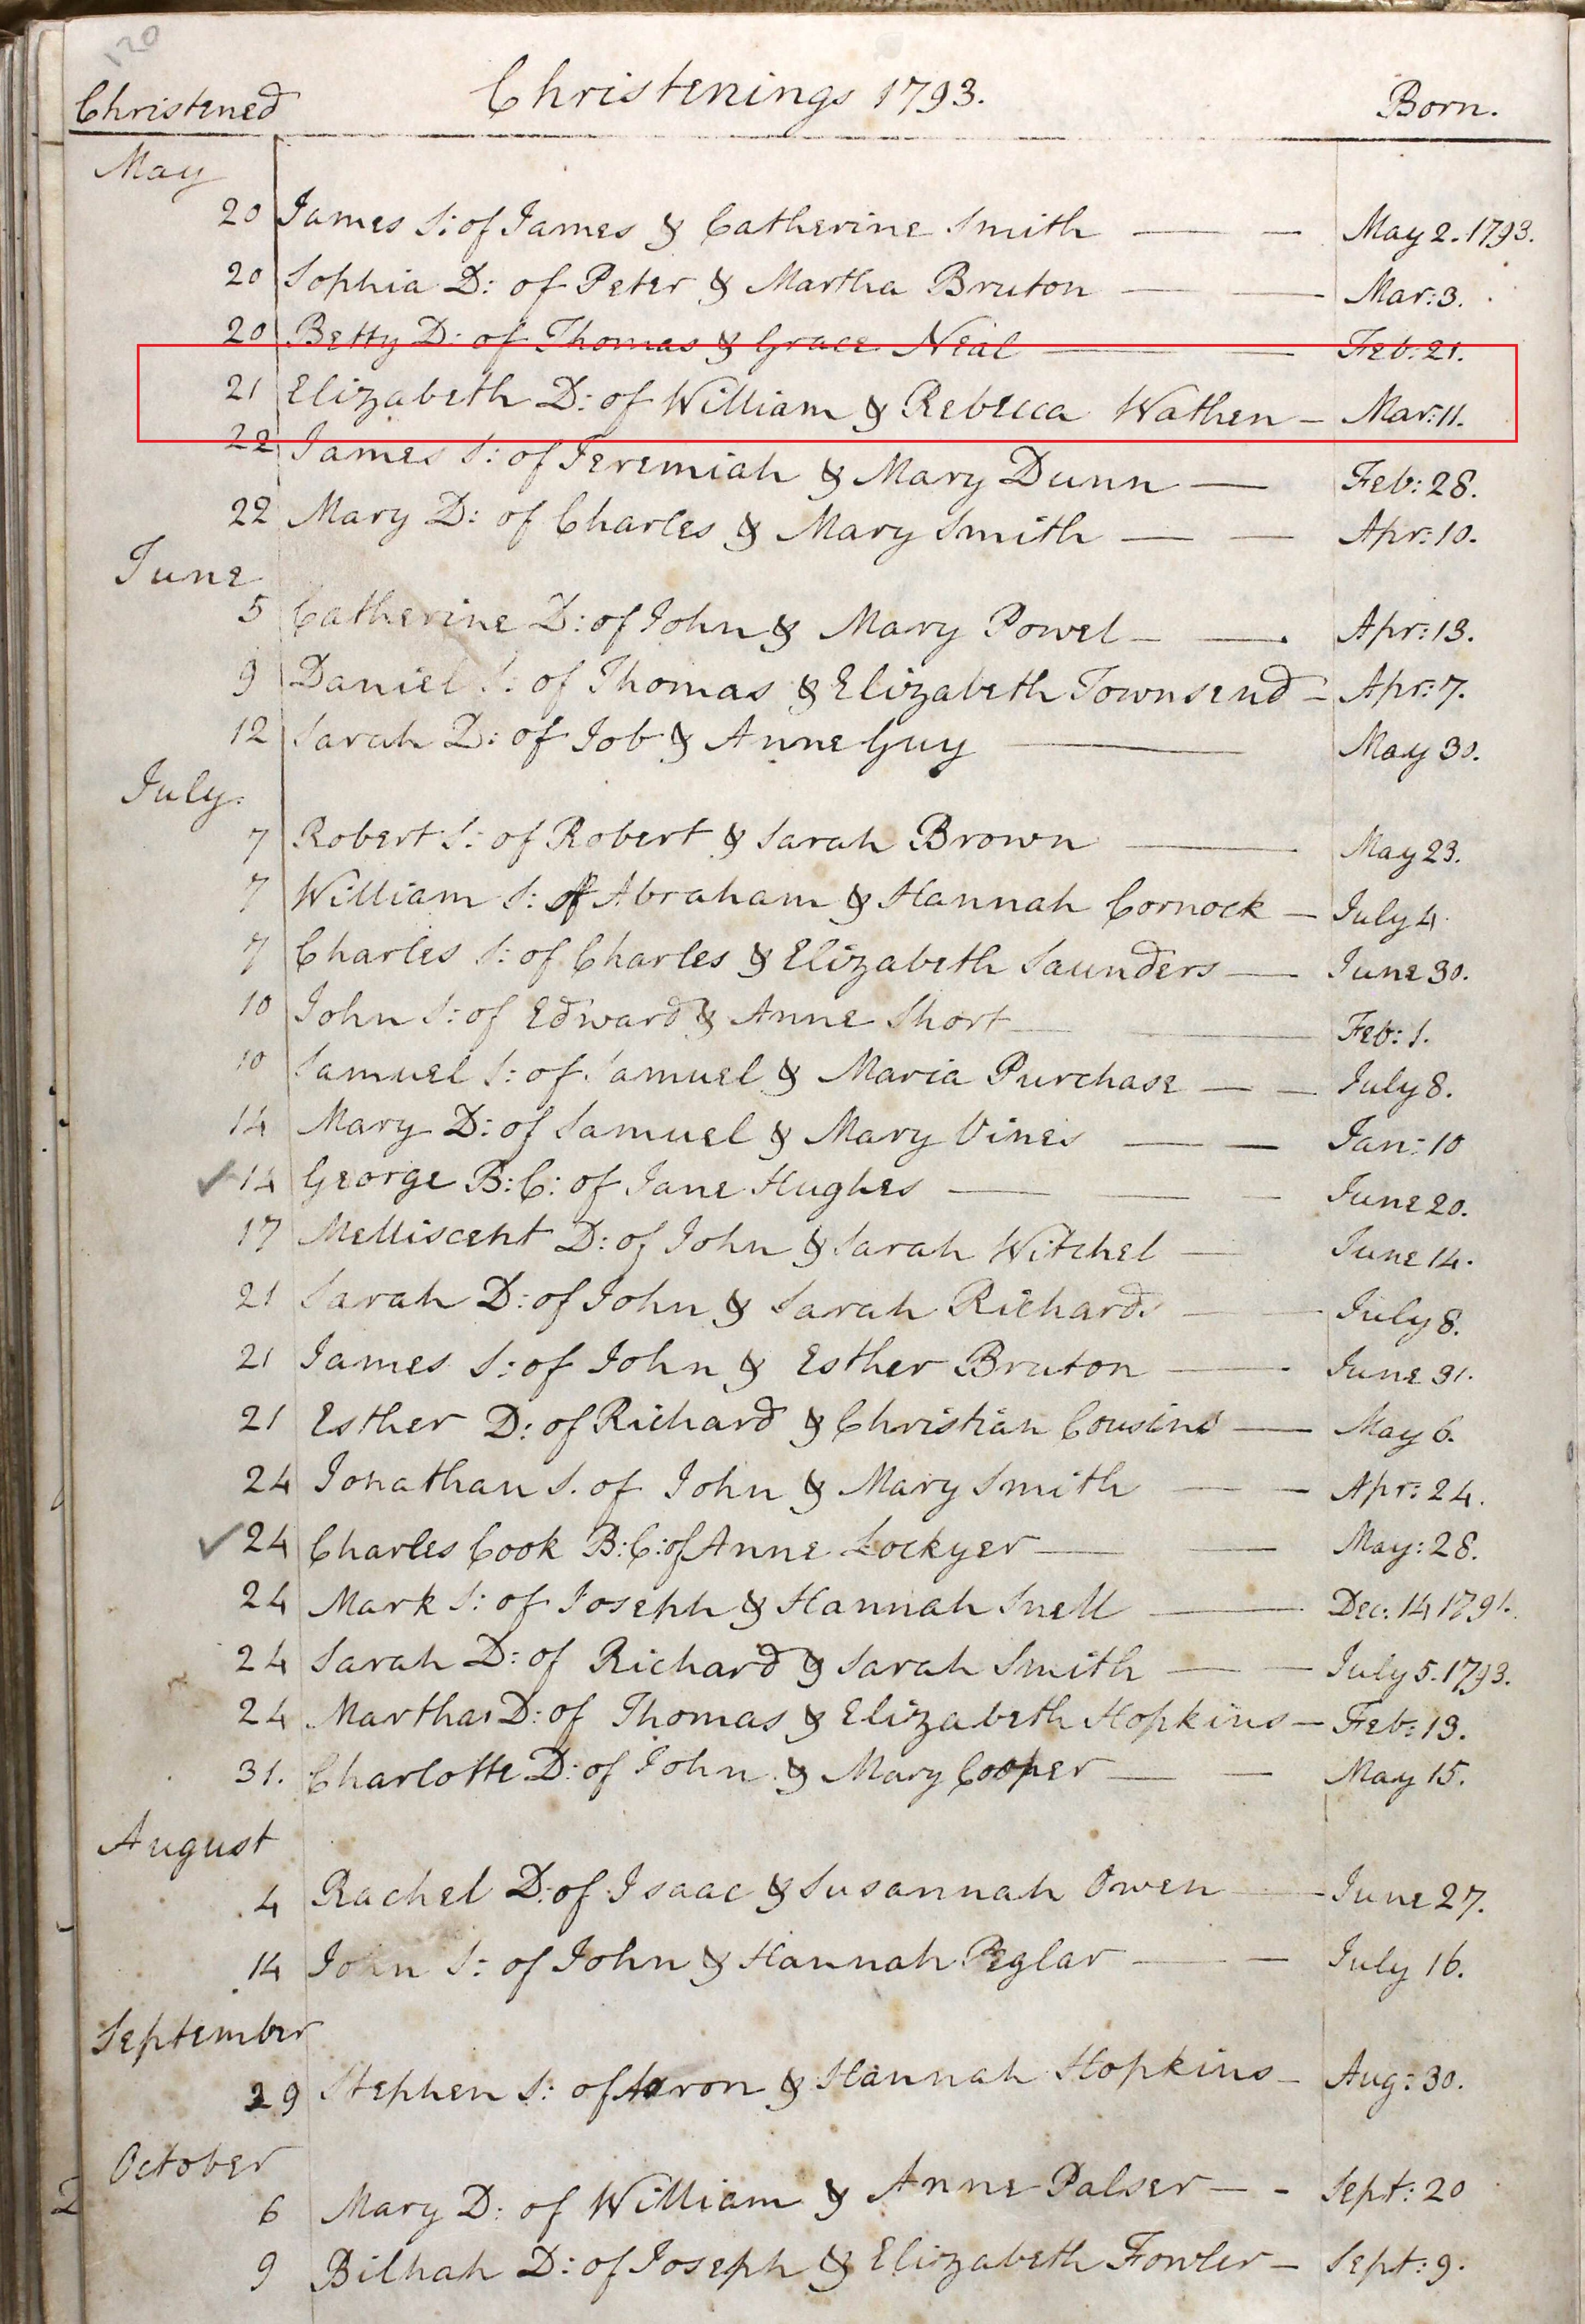 120
Christened Christenings 1793. Born.
May
20 James S: of James & Catherine Smith — — May 2. 1793.
20 Sophia D: of Peter & Martha Bruton — — Mar: 3.
20 Betty D: of Thomas & Grace Neal — — Feb: 21.
21 Elizabeth D: of William & Rebecca Wathen — Mar: 11.
22 James S: of Jeremiah & Mary Dunn — Feb: 28.
22 Mary D: of Charles & Mary Smith — — Apr: 10.
June
5 Catherine D: of John & Mary Powel — — Apr: 13.
9 Daniel S: of Thomas & Elizabeth Townsend — Apr: 7.
12 Sarah D: of Job & Anne Guy — May 30.
July.
7 Robert S: of Robert & Sarah Brown — May 23.
7 William S: of Abraham & Hannah Cornock — July 4.
7 Charles S: of Charles & Elizabeth Saunders — June 30.
10 John S: of Edward & Anne Short — Feb: 1.
10 Samuel S: of Samuel & Maria Purchase — — July 8.
14 Mary D: of Samuel & Mary Vines — — Jan: 10
✓ 14 George B: C: of Jane Hughes — — — June 20.
17 Melliscent D: of John & Sarah Witchel — June 14.
21 Sarah D: of John & Sarah Richards — — July 8.
21 James S: of John & Esther Bruton — June 31.
21 Esther D: of Richard & Christian Cousins — May 6.
24 Jonathan S. of John & Mary Smith — — Apr: 24.
✓ 24 Charles Cook B: C: of Anne Lockyer — — May: 28.
24 Mark S: of Joseph & Hannah Snell — Dec: 14 1791.
24 Sarah D: of Richard & Sarah Smith — — July 5. 1793.
24 Martha D: of Thomas & Elizabeth Hopkins — Feb: 13.
31. Charlotte D: of John & Mary Cooper — — May 15.
August
4 Rachel D: of Isaac & Susannah Owen — June 27.
14 John S: of John & Hannah Peglar — — July 16.
September
29 Stephen S: of Aaron & Hannah Hopkins — Aug: 30.
October
6 Mary D: of William & Anne Palser — - Sept: 20
9 Bilhah D: of Joseph & Elizabeth Fowler — Sept: 9.